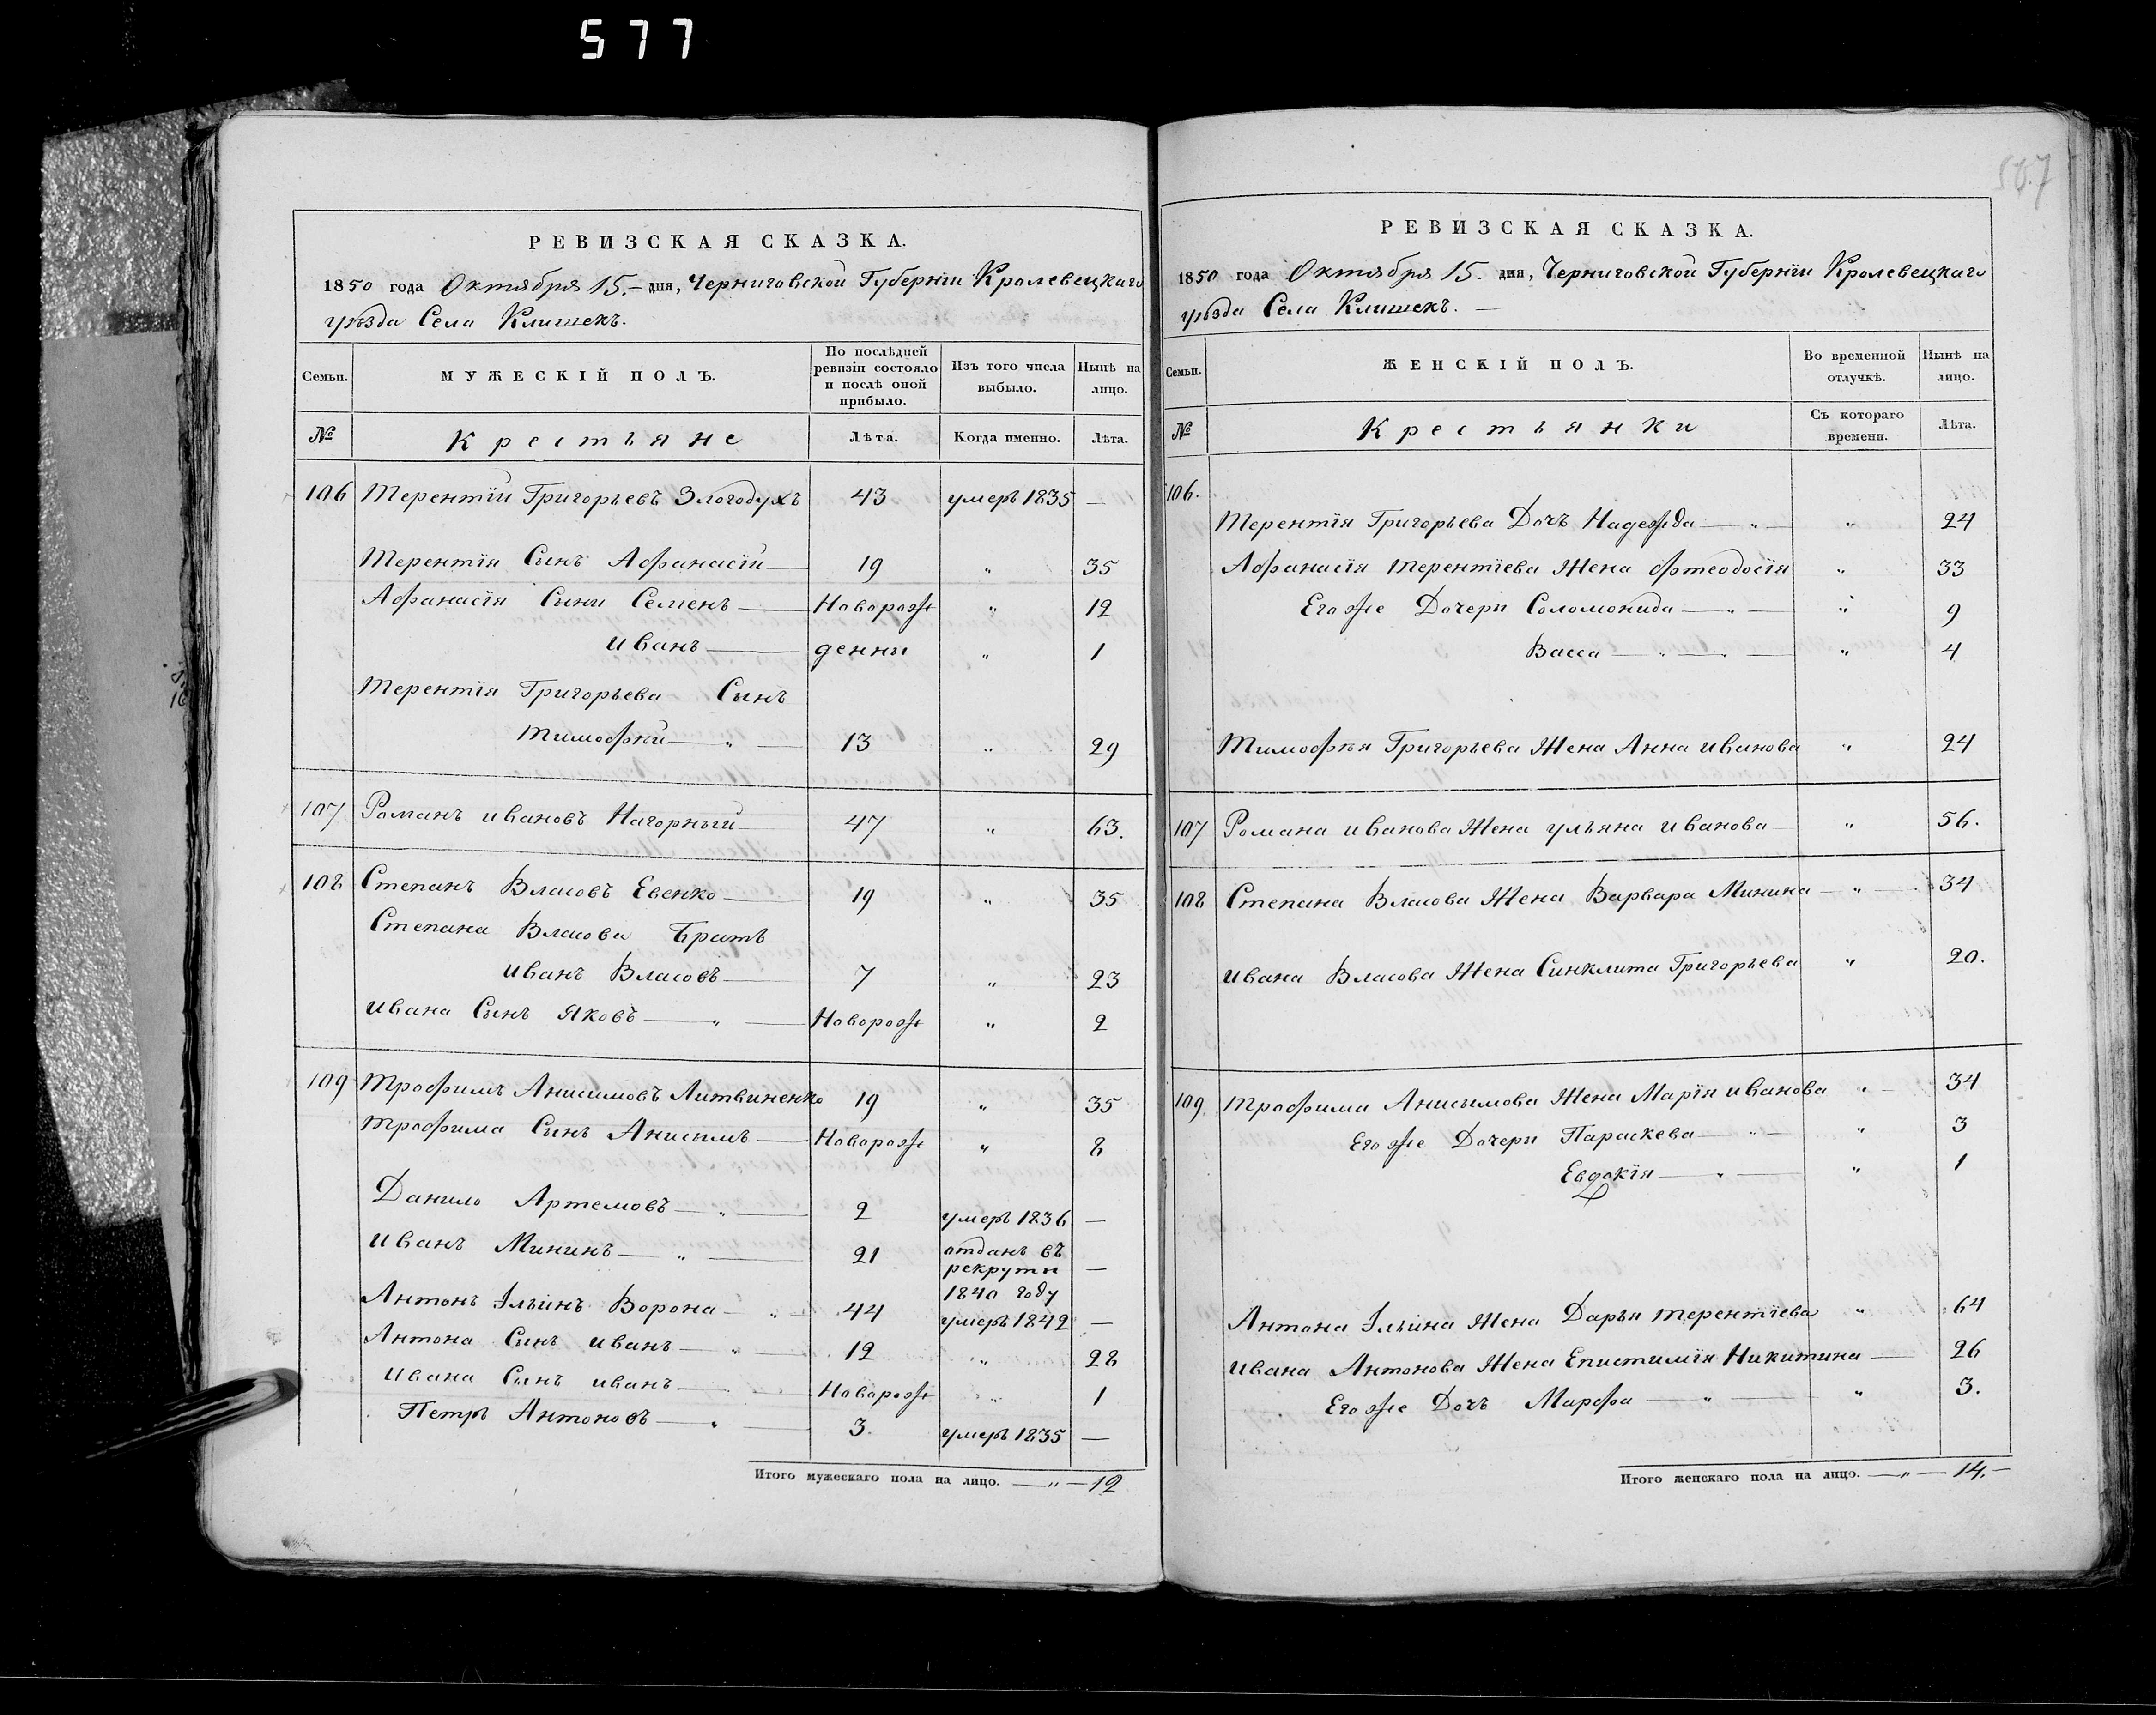 577
РЕВИЗСКАЯ СКАЗКА.
1850 года Октября 15.- дня, Черниговской Губерніи Кролевецкаго
уѣзда Села Клишекъ.
Семьи. МУЖЕСКІЙ ПОЛЪ. По послѣдней ревизіи состояло и послѣ оной прибыло. Изъ того числа выбыло. Нынѣ на лицо.
№ Крестьяне Лѣта. Когда именно. Лѣта.
106 Терентій Григорьевъ Злогодухъ 43 умеръ 1835 —
Терентія Сынъ Афанасій 19 " 35
Афанасія Сыни Семенъ Наворож " 12
Иванъ денны " 1
Терентія Григорьева Сынъ
Тимофѣй " 13 " 29
107 Романъ Ивановъ Нагорный 47 " 63.
108 Степанъ Власовъ Евенко 19 " 35
Степана Власова Братъ
Иванъ Власовъ 7 " 23
Ивана Сынъ Яковъ " Наворож " 2
109 Трофимъ Анисимовъ Литвиненко 19 " 35
Трофима Сынъ Анисымъ Наворож " 8
Данило Артемовъ " 2 умеръ 1836 —
Иванъ Мининъ " 21 отданъ въ рекруты 1840 году —
Антонъ Ильинъ Ворона " 44 умеръ 1842 —
Антона Сынъ Иванъ " 12 " 28
Ивана Сынъ Иванъ Наворож " 1
Петръ Антоновъ " 3. умеръ 1835 —
Итого мужескаго пола на лицо. — " — 12
РЕВИЗСКАЯ СКАЗКА.
1850 года Октября 15. дня, Черниговской Губерніи Кролевецкаго
уѣзда Села Клишекъ. —
Семьи. ЖЕНСКІЙ ПОЛЪ. Во временной отлучкѣ. Нынѣ на лицо.
№ Крестьянки Съ котораго времени. Лѣта.
106.
Терентія Григорьева Дочъ Надежда — " — " 24
Афанасія Терентіева Жена Фтеодосія " 33
Егоже Дочери Соломонида — " — " 9
Васса — " — " — " 4
Тимофѣя Григорьева Жена Анна Иванова " 24
107 Романа Иванова Жена Ульяна Иванова " 56.
108 Степана Власова Жена Варвара Минина — " — 34
Ивана Власова Жена Синклита Григорьева " 20.
109 Трофима Анисымова Жена Марія Иванова " 34
Егоже Дочери Параскева — " — " 3
Евдокія — " — " 1
Антона Ильина Жена Дарья Терентіева " 64
Ивана Антонова Жена Епистимія Никитина — 26
Егоже Дочъ Марфа — " — " 3.
Итого женскаго пола на лицо. — " — 14. —